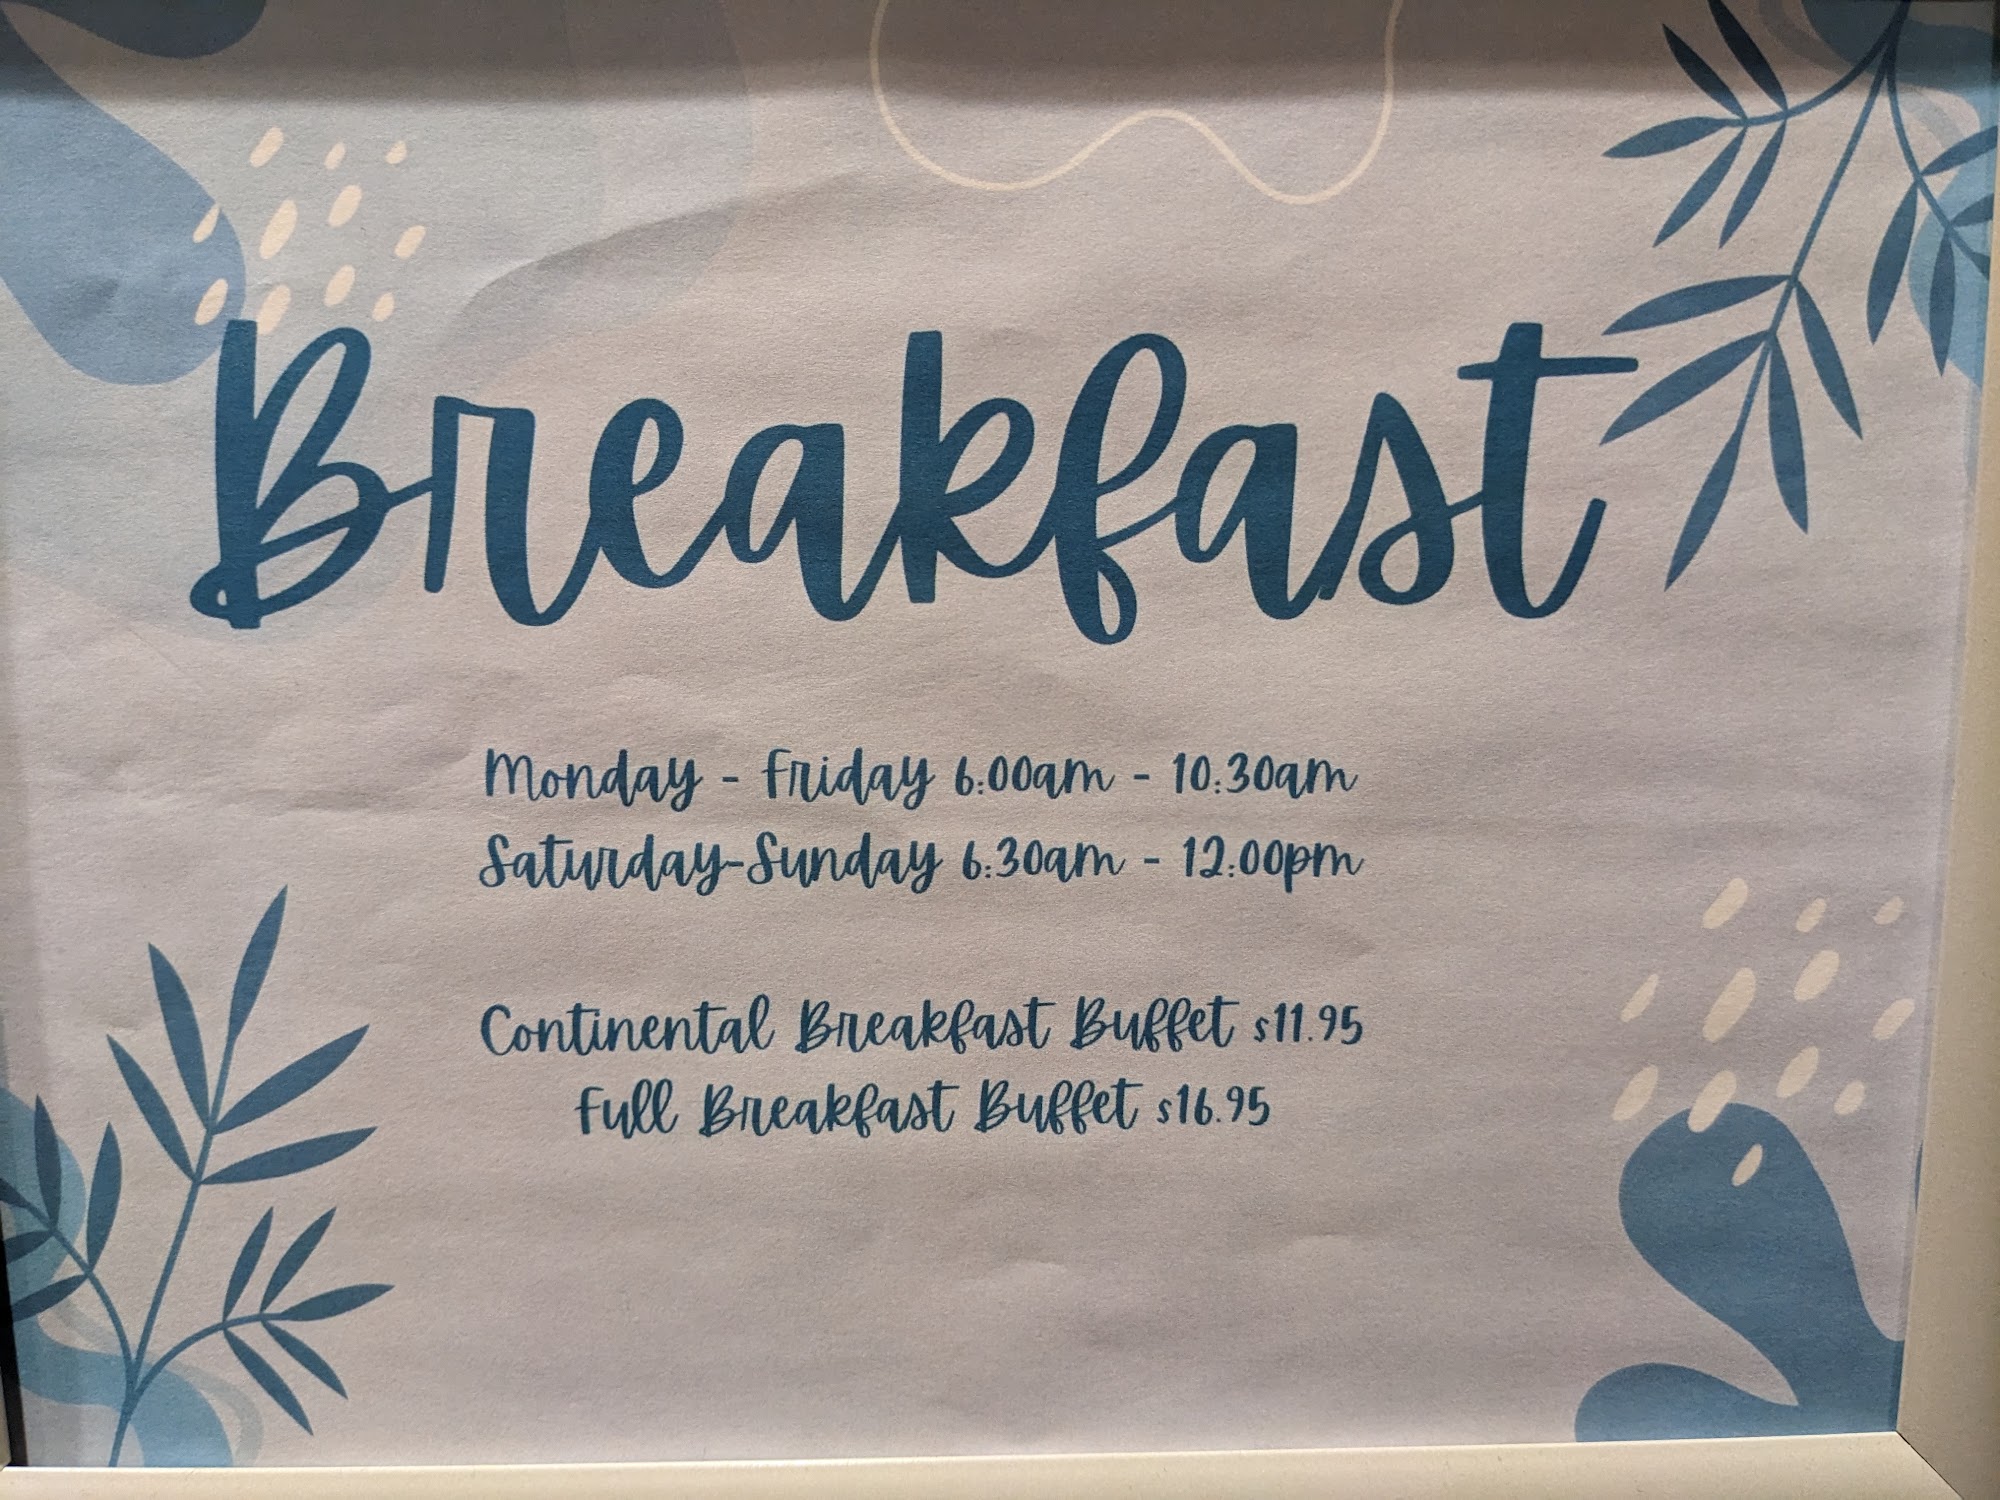 Breakfast
Monday - Friday 6:00am - 10:30am
Saturday-Sunday 6:30am - 12:00pm
Continental Breakfast Buffet $11.95
Full Breakfast Buffet $16.95